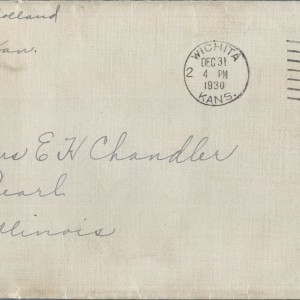 olland
an.
WICHITA
DEC 31
2 4 PM
1930
KANS.
rs E H Chandler
earl
llinois